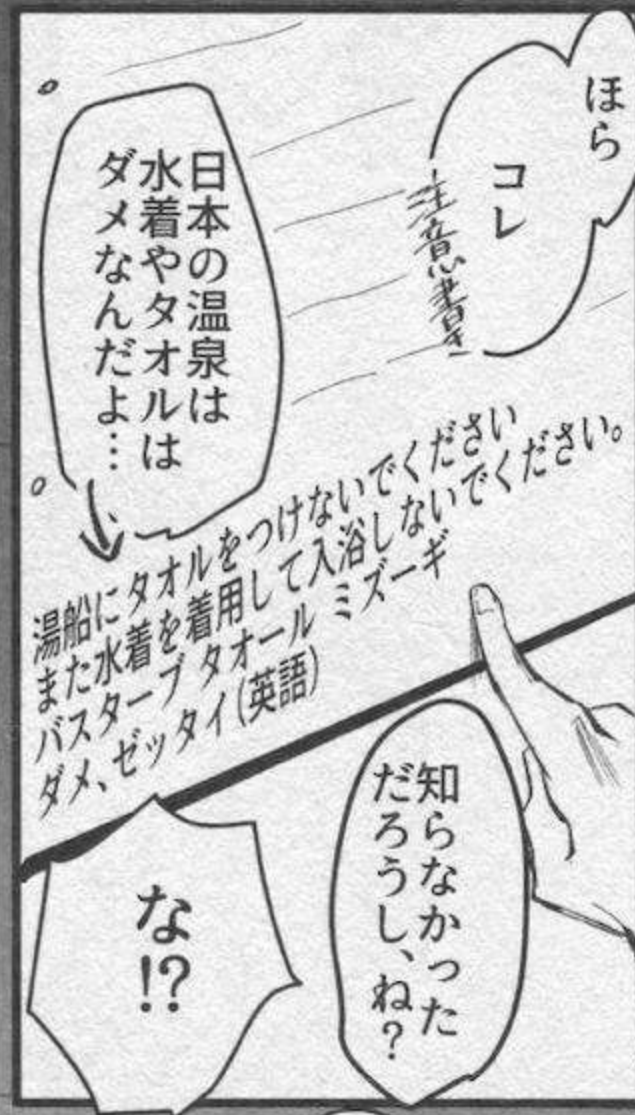 ほら
コレ
注意書き
日本の温泉は
水着やタオルは
ダメなんだよ…
湯船にタオルをつけないでください
また水着を着用して入浴しないでください。
バスターブ タオール ミズーギ
ダメ、ゼッタイ(英語)
知らなかった
だろうし、ね?
な!?